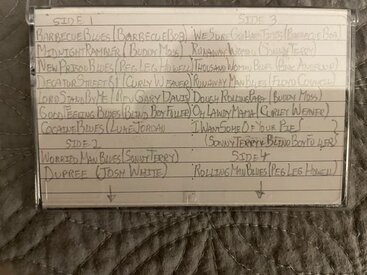 SIDE 1
BARBECUE BLUES (BARBECUE BOB)
MIDNIGHT RAMBLER (BUDDY MOSS)
NEW PRISON BLUES (PEG LEG HOWELL)
DECATUR STREET 81 (CURLY WEAVER)
LORD STAND BY ME (REV GARY DAVIS)
GOOD FEELING BLUES (BLIND BOY FULLER)
COCAINE BLUES (LUKE JORDAN)
SIDE 2
WORRIED MAN BLUES (SONNY TERRY)
DUPREE (JOSH WHITE)
SIDE 3
WE SURE GOT HARD TIMES (BARBECUE BOB)
RUNAWAY WOMAN (SONNY TERRY)
THOUSAND WOMAN BLUES (PINK ANDERSON)
RUNAWAY MAN BLUES (FLOYD COUNCIL)
DOUGH ROLLING PAPA (BUDDY MOSS)
OH LAWDY MAMA (CURLEY WEAVER)
I WANT SOME OF YOUR PIE (
(SONNY TERRY & BLIND BOY FULLER)
SIDE 4
ROLLING MAN BLUES (PEG LEG HOWELL)